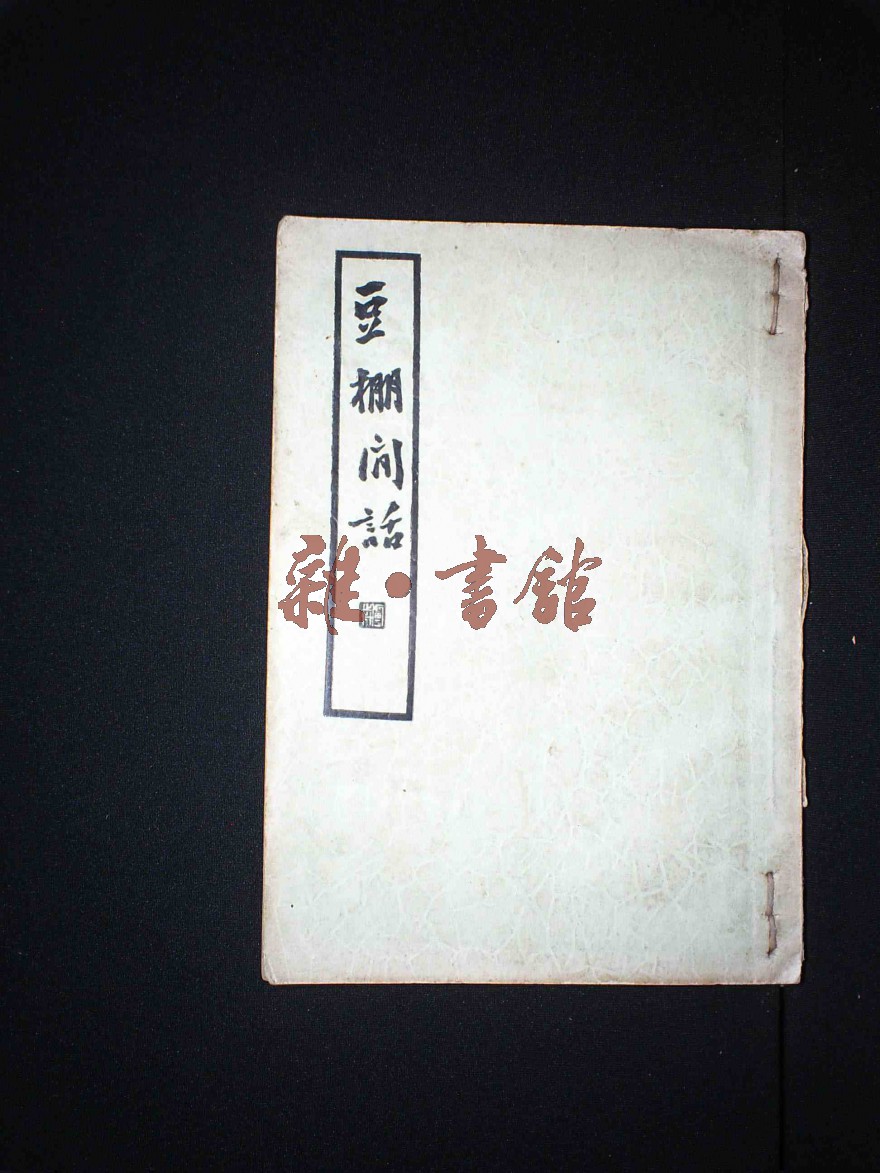 豆棚閒話
雜·書館